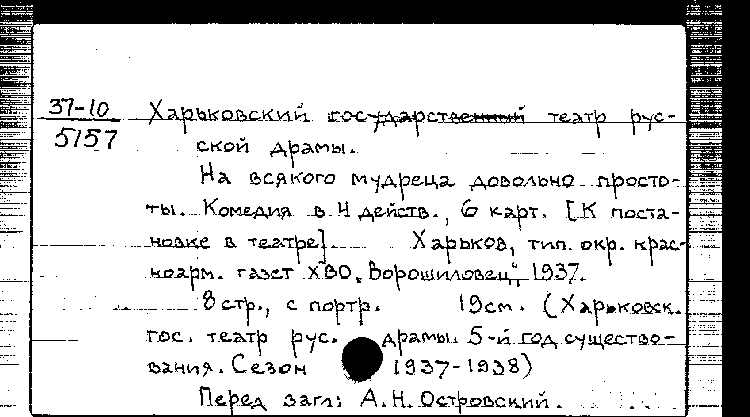 37-10
5157
Харьковский государственный театр рус-
ской драмы.
На всякого мудреца довольно просто-
ты. Комедия в 4 действ., 6 карт. [К поста-
новке в театре]. Харьков, тип. окр. крас-
ноарм. газет ХВО „Ворошиловец", 1937.
8 стр., с портр. 19см. (Харьковск.
гос. театр рус. драмы. 5-й год существо-
вания. Сезон 1937-1938)
Перед загл: А.Н. Островский.